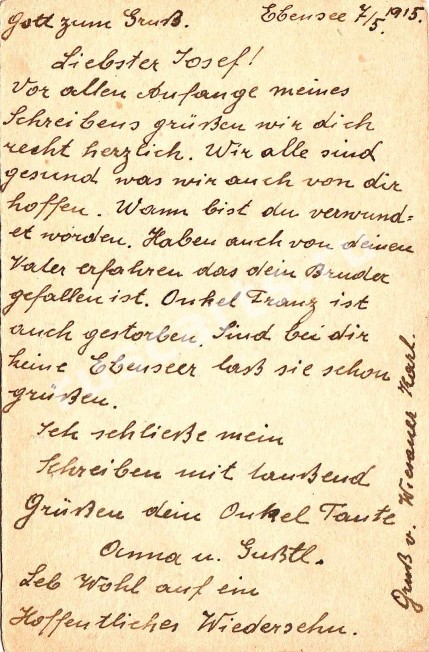 Gott zum Gruß. Ebensee 7/5. 1915.
Liebster Josef!
Vor allen Anfange meines
Schreibens grüßen wir dich
recht herzlich. Wir alle sind
gesund was wir auch von dir
hoffen. Wann bist du verwund=
et worden. Haben auch von deinen
Vater erfahren das dein Bruder
gefallen ist. Onkel Franz ist
auch gestorben. Sind bei dir
keine Ebenseer laß sie schon
grüßen.
Ich schließe mein
Schreiben mit taußend
Grüßen dein Onkel Tante
Anna u. Gußtl.
Leb Wohl auf ein
Hoffentliches Wiedersehn.
Gruß v. Karl.